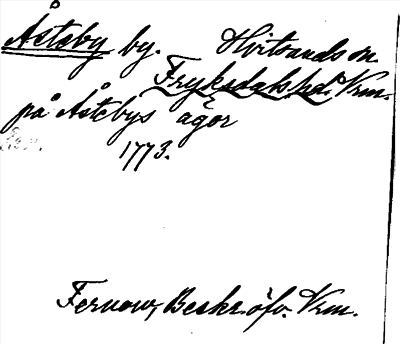 Åsteby by. Hvitsands sn
Fryksdals hd. Vrm.
på Åstebys ägor
1773.
Fernow, Beskr. öfv. Vrm.